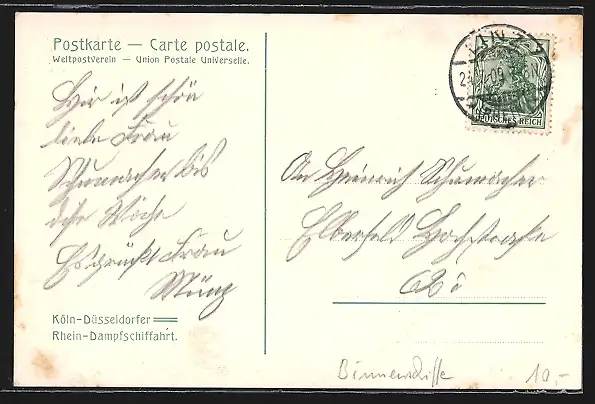 Postkarte — Carte postale.
Weltpostverein — Union Postale Universelle.
Hir ist schön
liebe Frau
Schumacher bis
diese Woche
Es grückt Frau
Münz
Köln-Düsseldorfer
Rhein-Dampfschiffahrt.
DEUTSCHES REICH
An Heinrich Schumacher
Elberfeld Hochstraße
62
Binnenschiffe
10,-